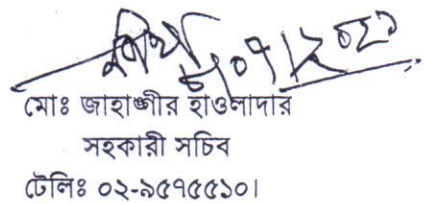 মোঃ জাহাঙ্গীর হাওলাদার
সহকারী সচিব
টেলিঃ ০২-৯৫৭৫৫১০।